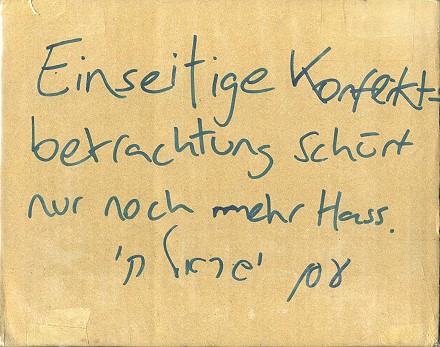 Einseitige Konflikt=
betrachtung schürt
nur noch mehr Hass.
עם ישראל חי